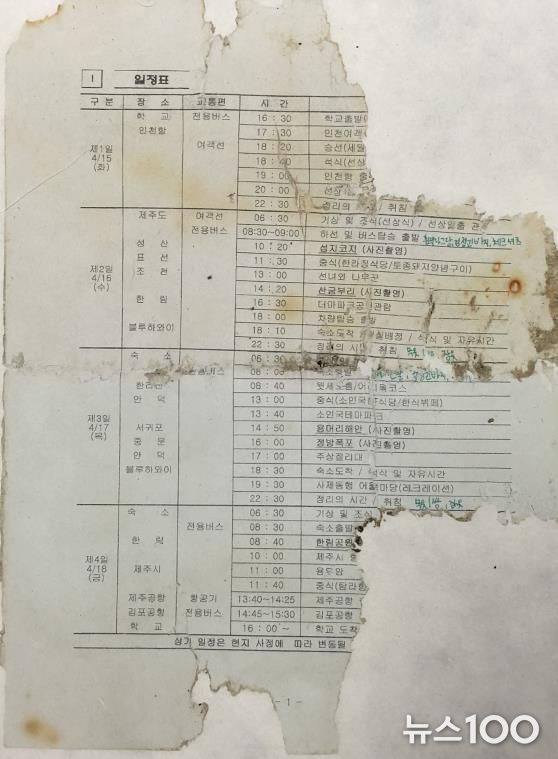 I 일정표
구 분 장 소 교통편 시 간
제1일 4/15 (화)
학 교 전용버스 16 : 30 학교출발
인천항 17 : 30 인천여객
여객선 18 : 20 승선(세월
18 : 40 석식(선상
19 : 00 인천항 출
20 : 00 선상
22 : 30 정리의 / 취침
제2일 4/16 (수)
제주도 여객선 06 : 30 기상 및 조식(선상식) / 선상일출 관
전용버스 08:30~09:00 하선 및 버스탑승 출발
성 산 10 : 20 섭지코지 (사진촬영)
표 선 11 : 30 중식(한라정식당/토종돼지양념구이)
조 천 13 : 00 선녀와 나무꾼
14 : 20 산굼부리 (사진촬영)
한 림 16 : 30 더마파크공연관람
18 : 00 차량탑승 출발
블루하와이 18 : 10 숙소도착 / 실배정 / 석식 및 자유시간
22 : 30 정리의 시간 / 취침
제3일 4/17 (목)
숙 소 06 : 30
08 : 00 숙소출발
한라산 08 : 40 윗세오름/어리목코스
안 덕 13 : 00 중식(소인국 식당/한식뷔페)
13 : 40 소인국테마파크
서귀포 14 : 50 용머리해안 (사진촬영)
중 문 16 : 00 정방폭포 (사진촬영)
안 덕 17 : 00 주상절리대
블루하와이 18 : 30 숙소도착 / 석식 및 자유시간
19 : 30 사제동행 어울 마당(레크레이션)
22 : 30 정리의 시간 / 취침
제4일 4/18 (금)
숙 소 06 : 30 기상 및 조식
전용버스 08 : 30 숙소출발
한 림 08 : 40 한림공원
10 : 00 제주시
제주시 11 : 00 용두암
11 : 40 중식(탐라
제주공항 항공기 13:40~14:25 제주공항
김포공항 전용버스 14:45~15:30 김포공항
학 교 16 : 00 ~ 학교 도착
상기 일정은 현지 사정에 따라 변동될
- 1 -
뉴스100